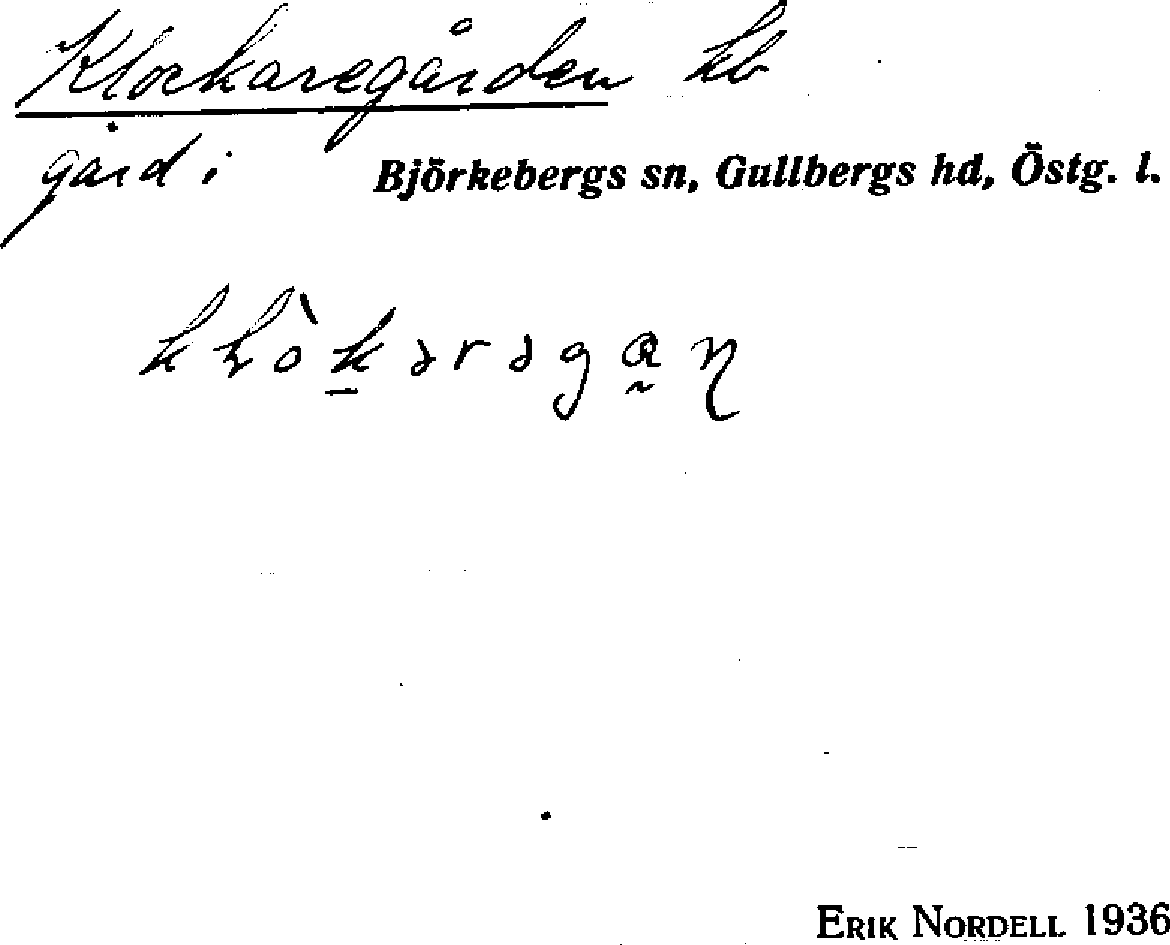 Klockaregården kb
gård i Björkebergs sn, Gullbergs hd, Östg. l.
kɬòk̠ərəgɑ̰ɳ
ERIK NORDELL 1936